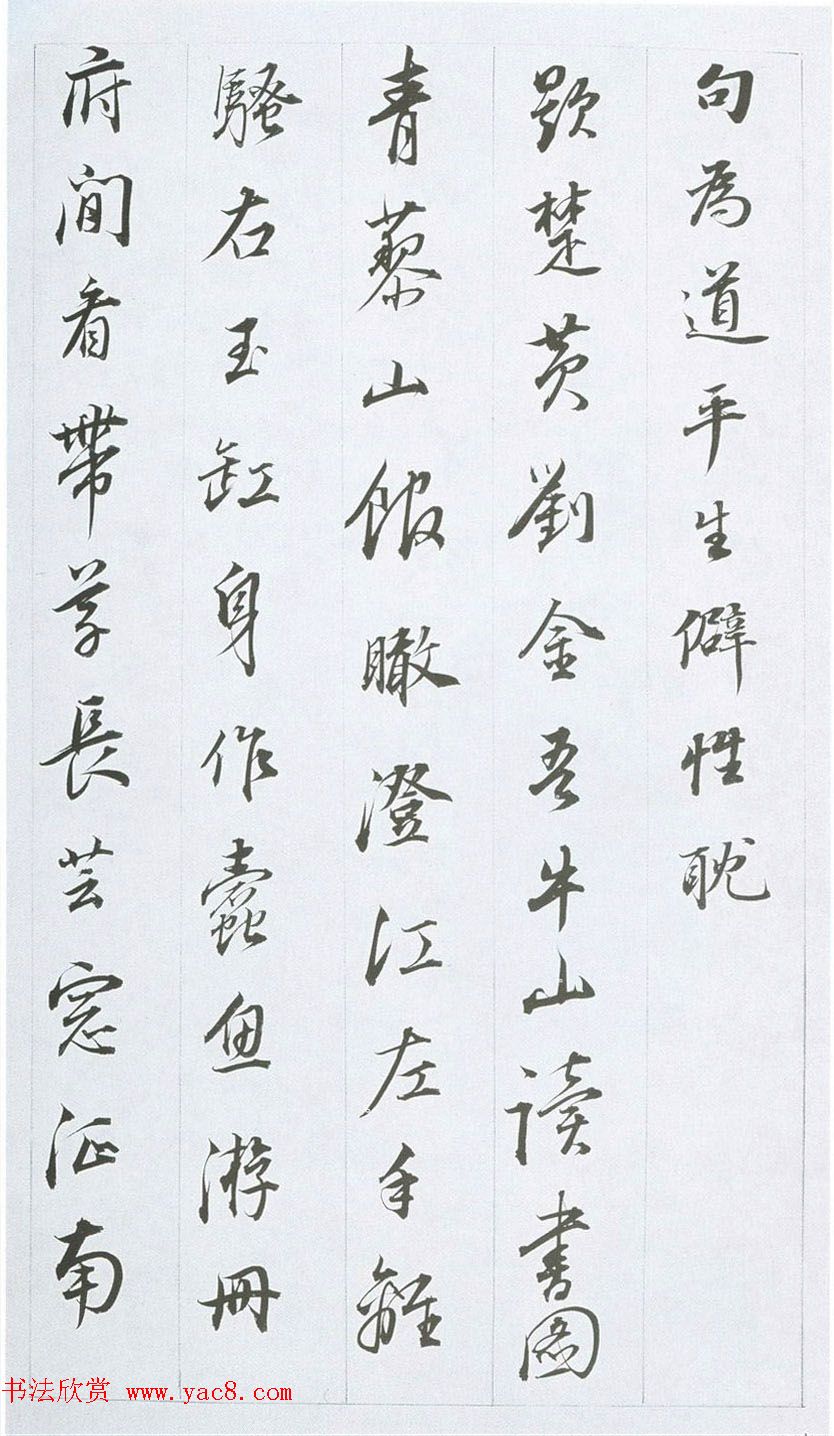 句為道平生僻性耽
題楚黄劉金吾牛山读書圖
青藜山館瞰澄江左手離
騷右玉缸身作蠹魚游冊
府閒看帶草長芸窓征南
书法欣赏 www.yac8.com